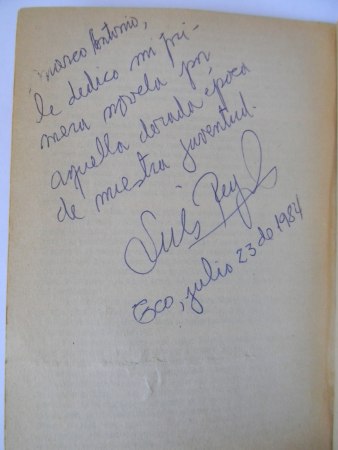 Marco Antonio,
le dedico mi pri-
mera novela por
aquella dorada época
de nuestra juventud.
Luis Rey
Gco, julio 23 de 1984